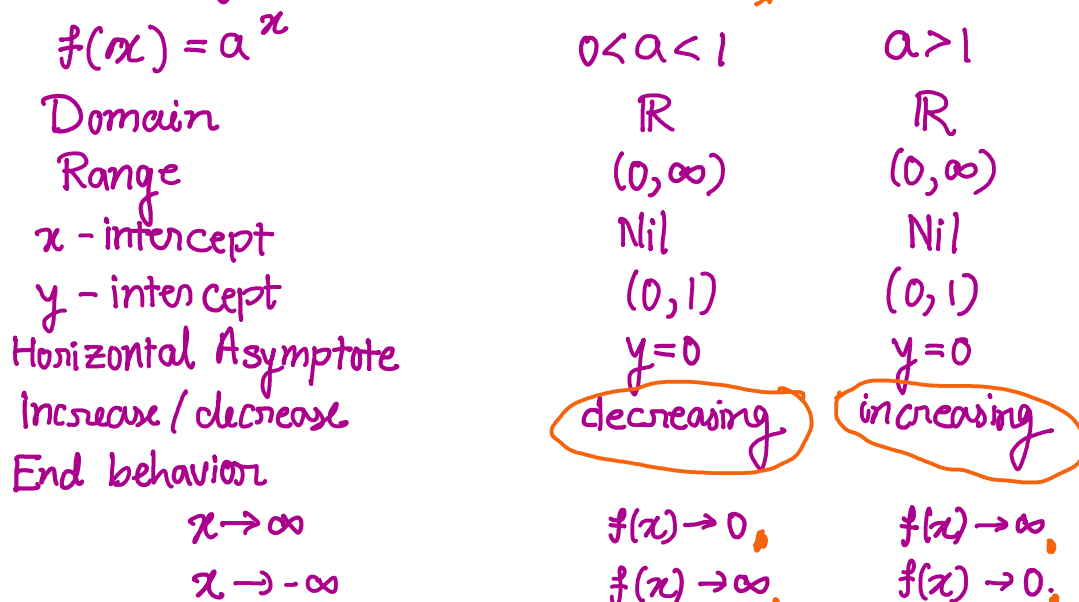 f(x) = a^x 0<a<1 a>1
Domain ℝ ℝ
Range (0,∞) (0,∞)
x - intercept Nil Nil
y - intercept (0,1) (0,1)
Horizontal Asymptote y=0 y=0
Increase / decrease decreasing increasing
End behavior
x→∞ f(x)→0 f(x)→∞
x→-∞ f(x)→∞ f(x)→0.